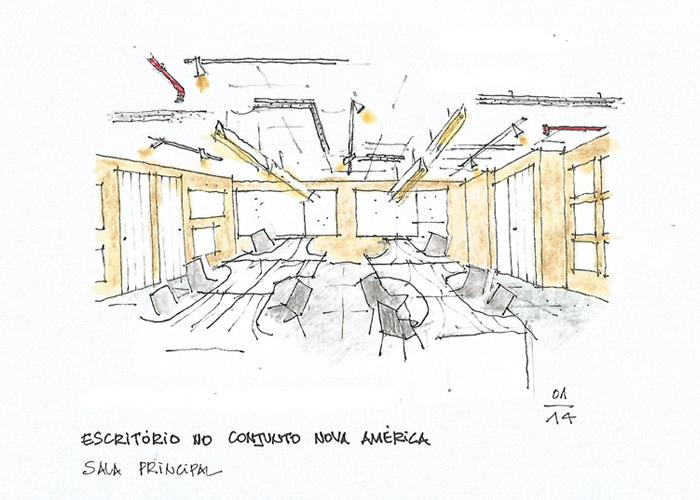 01
14
ESCRITÓRIO NO CONJUNTO NOVA AMÉRICA
SALA PRINCIPAL